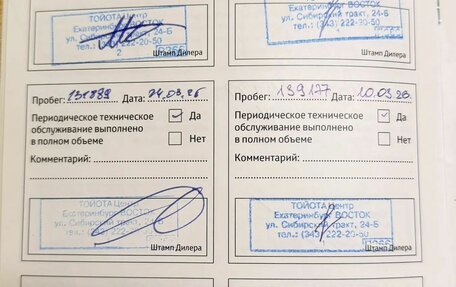 ТОЙОТА Центр
Екатеринбург ВОСТОК
ул. Сибирский тракт, 24-Б
тел.: (343) 222-20-50
2
Штамп Дилера
Екатеринбург ВОСТОК
ул. Сибирский тракт, 24-Б
тел.: (343) 222-20-50
Штамп Дилера
Пробег: Дата:
Периодическое техническое
обслуживание выполнено
в полном объеме
Да
Нет
Комментарий:
ТОЙОТА Центр
Екатеринбург ВОСТОК
ул. Сибирский тракт, 24-Б
тел.: (343) 222-
Штамп Дилера
Пробег: 139177 Дата: 10.03.26
Периодическое техническое
обслуживание выполнено
в полном объеме
Да
Нет
Комментарий:
ТОЙОТА Центр
Екатеринбург ВОСТОК
ул. Сибирский тракт, 24-Б
тел.: (343) 222-20-50
Штамп Дилера